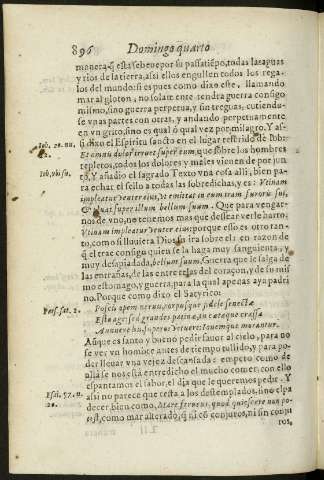 896 Domingo quarto
manera q̃ esta se beue por su passatiẽpo, todas las aguas
y rios de la tierra, assi ellos engullen todos los rega-
los del mundo: si es pues como dixo este, llamando
mar al gloton, no solamẽte tendra guerra consigo
mismo, sino guerra perpetua, y sin treguas, cutiendo-
se vnas partes con otras, y andando perpetuamente
en vn grito, sino es qual o qual vez por milagro. Y as-
Iob. 20. nu.
si dixo el Espiritu sancto en el lugar referido de Iob:
Et omnis dolor irruet super eum, que sobre los hombres
repletos, todos los dolores y males vienen de por jun-
Iob, vbi su.
to, Y añadio el sagrado Texto vna cosa alli, bien pa-
ra echar el sello a todas las sobredichas, y es: Vtinam
impleatur venter eius, vt emittat in eum iram furoris sui,
& pluat super illum bellum suum. Que para vengar-
nos de vno, no tenemos mas que dessear verle harto:
Vtinam impleatur venter eius: porque esso es otro tan-
to, como si lluuiera Dios su ira sobre el: en razon de
q̃ el trae consigo quien se la haga muy sangrienta, y
muy desapiadada, bellum suum. Guerra que le salga de
las entrañas, de las entretelas del coraçon, y de su mis-
mo estomago, y guerra, para la qual apenas aya padri
no. Porque como dixo el Satyrico:
Pers. sat. 2.
Poscis opem neruis, corpusque fidele senectæ
Esto age: sed grandes patinæ, tucetaque crassa
Annuere his superos vetuere: Iouemque morantur.
Aũque es santo y bueno pedir fauor al cielo, para no
se ver vn hombre antes de tiempo tullido, y para po-
der lleuar vna vejez descansada: empeto como de
alla se nos està entredicho el mucho comer: con ello
espantamos el sabor, el dia que le queremos pedir. Y
assi no parece que testa a los destemplados, sino el pa
Esai. 57. n.
20.
decer, bien como, Mare feruens, quod quiescere non po-
test, como mar alterado, q̃ ni cõ conjuros, ni sin conju
ros,